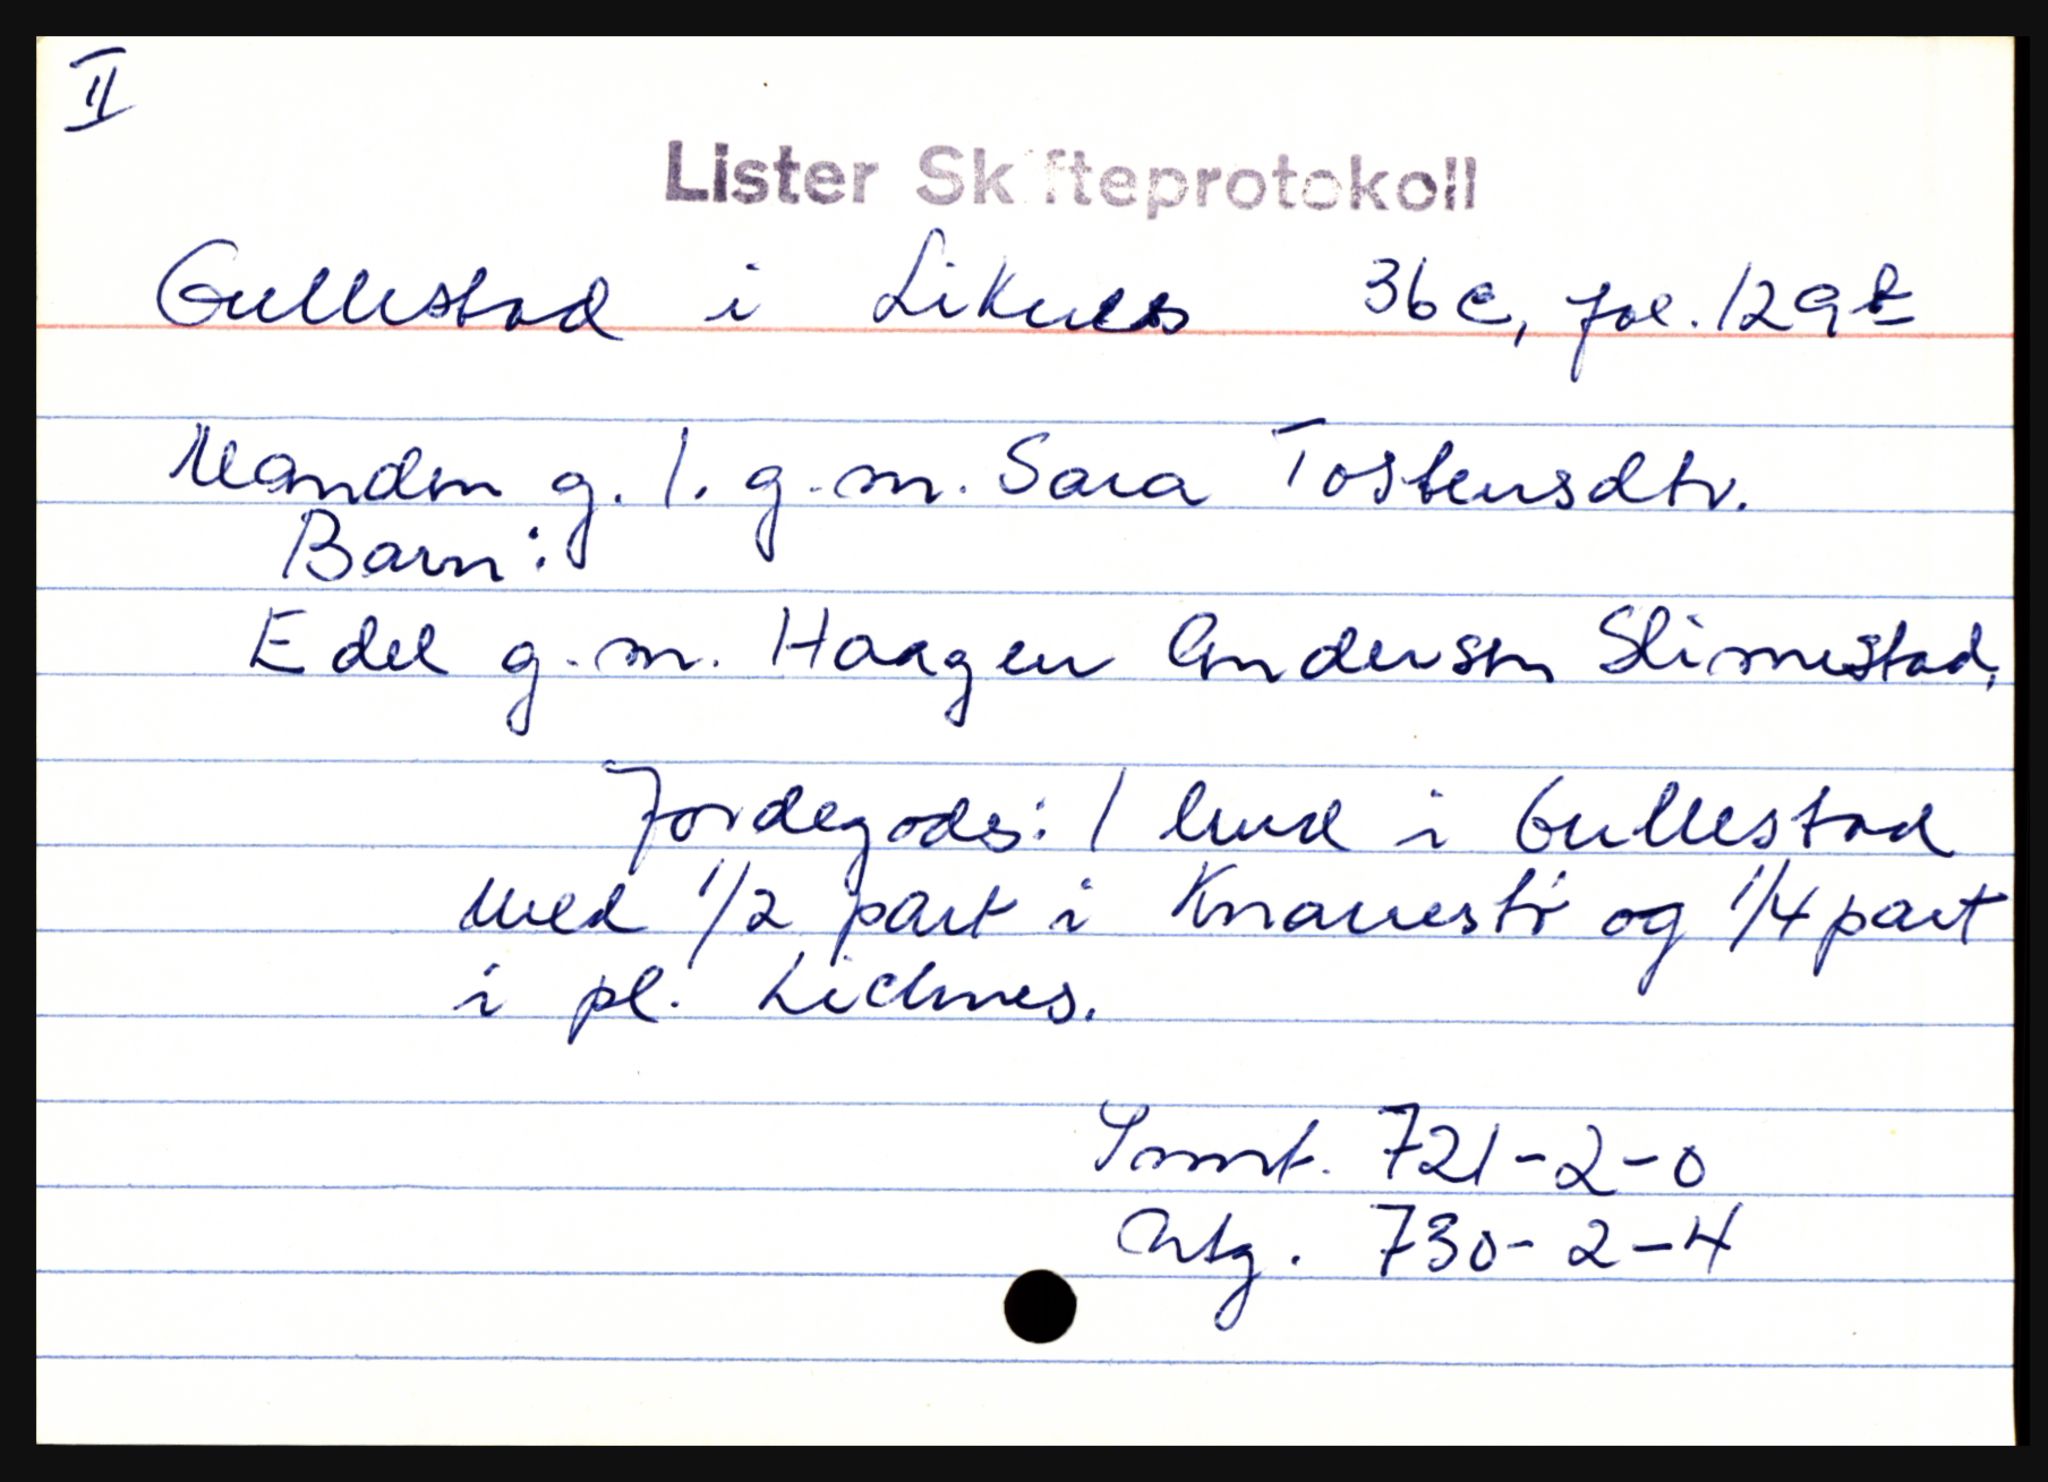 II
Lister Skifteprotokoll
Gullestad i Liknes 36c, fol. 129b
Manden g. 1. g.m. Sara Tostensdtr.
Barn:
Edel g.m. Haagen Andersen Slimestad.
Jordegods: 1 hud i Gullestad
med 1/2 part i og 1/4 part
i pl. Lichnes.
Smt. 721-2-0
Utg. 730-2-4